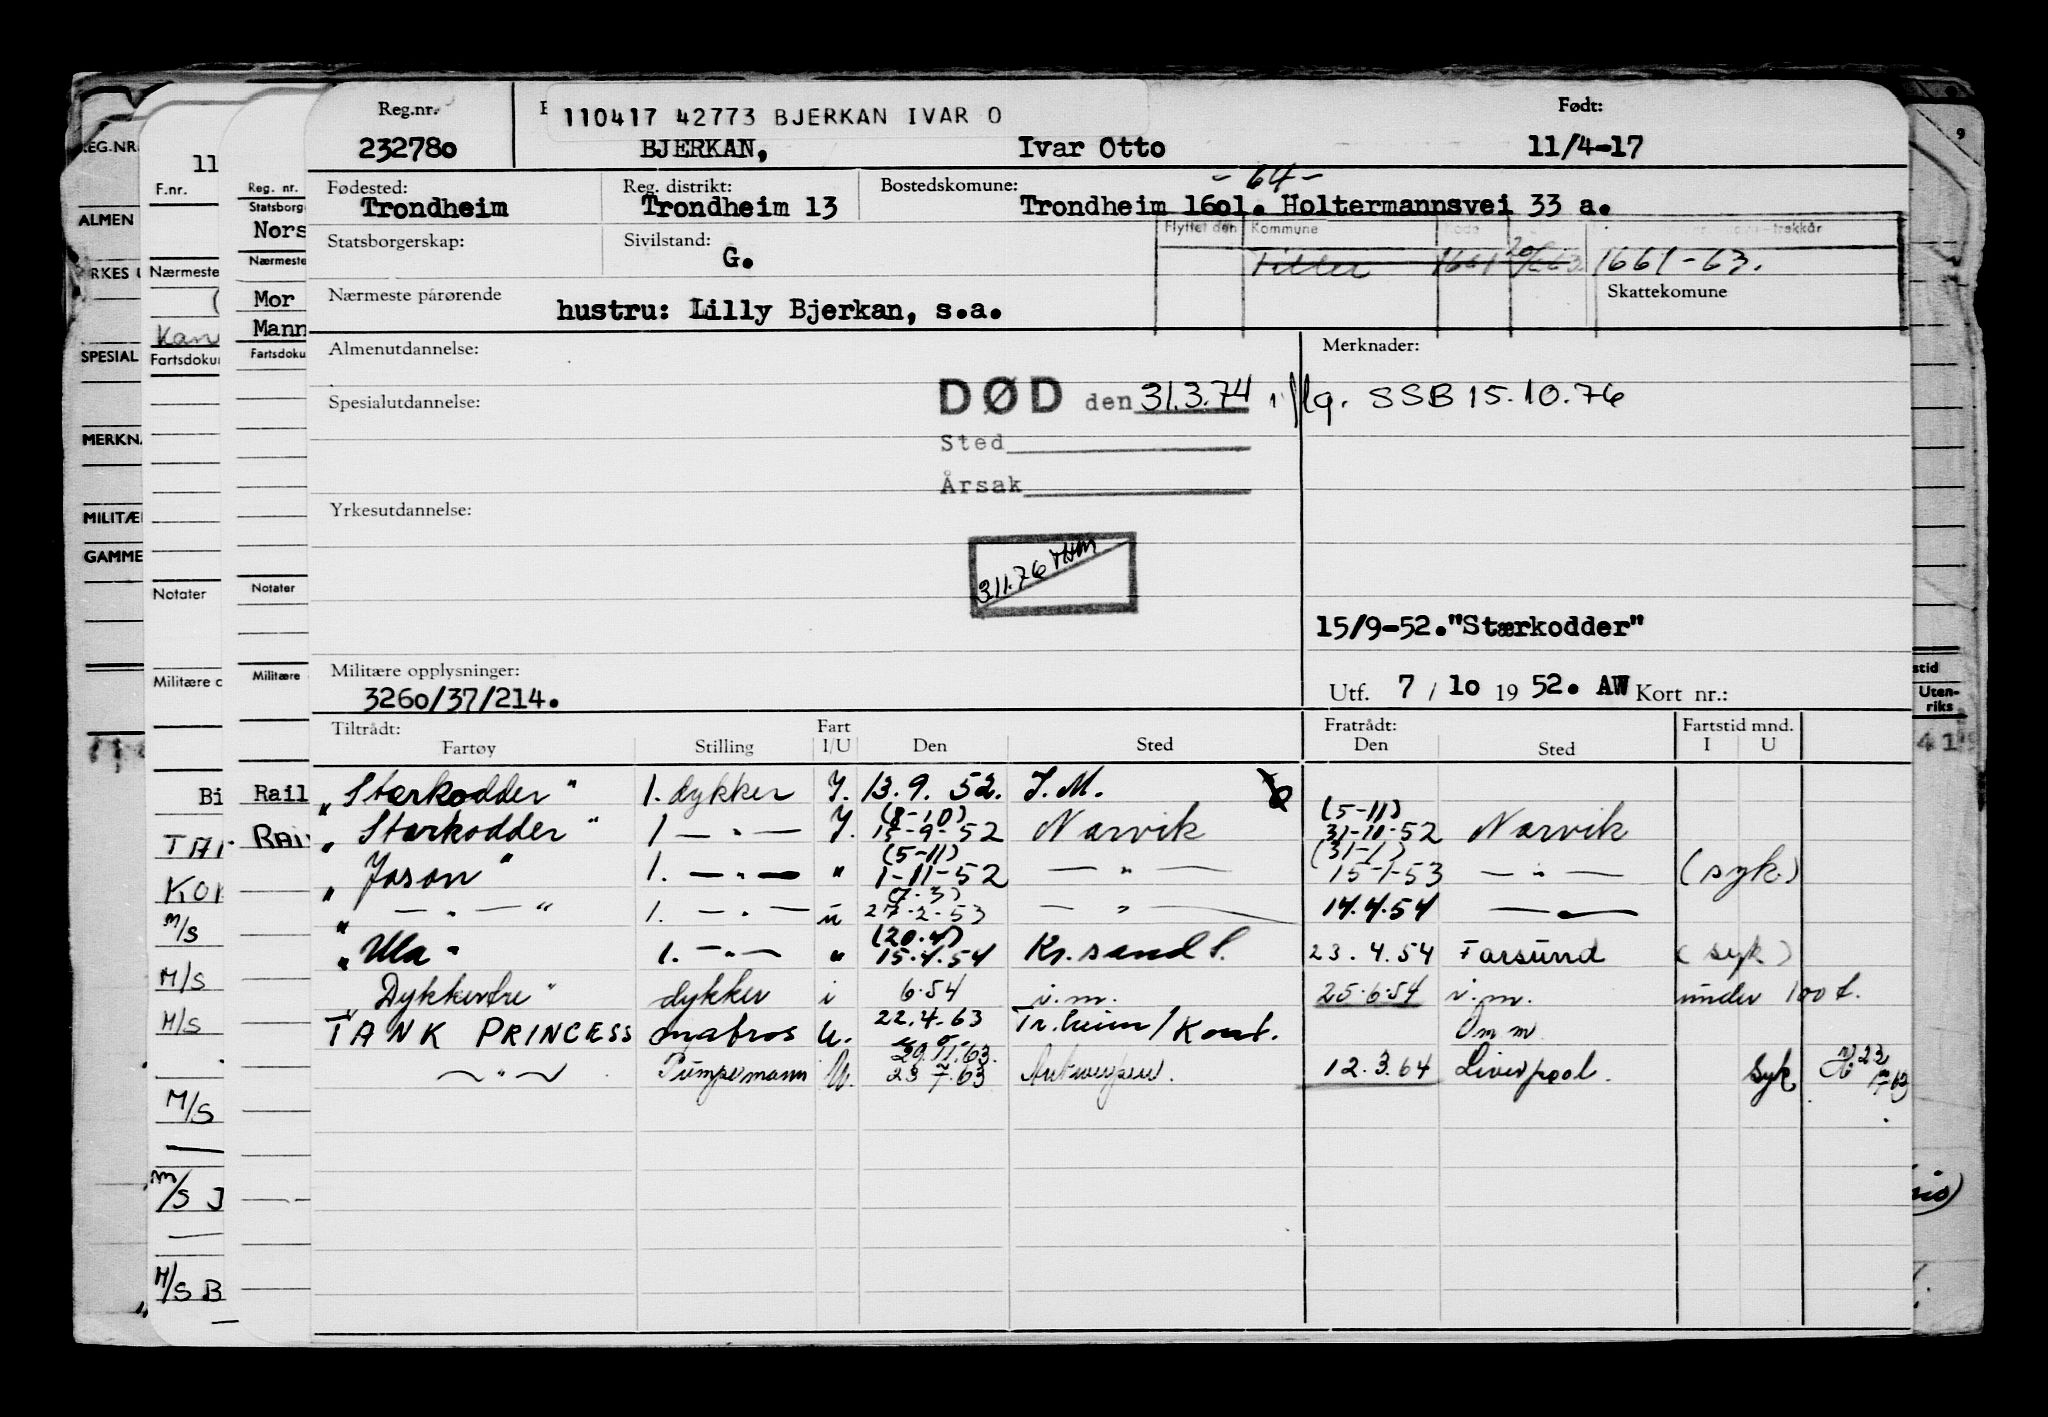 Reg.nr.
110417 42773 BJERKAN IVAR O
Født:
23278o
BJERKAN,
Ivar Otto
11/4-17
Fødested:
Trondheim
Reg. distrikt:
Trondheim 13
Bostedskomune:
- 64 -
Trondheim 16o1. Holtermannsvei 33 a.
Statsborgerskap:
Sivilstand:
G.
Flyttet den
Kommune
Kode
trekkår
Tiller 1661 20/6 63
1661-63.
Skattekomune
Nærmeste pårørende
hustru: Lilly Bjerkan, s.a.
Almenutdannelse:
Merknader:
Spesialutdannelse:
DØD den 31.3.74 iflg. SSB 15.10.76
Sted
Årsak
Yrkesutdannelse:
3.11.76 THM
15/9-52."Stærkodder"
Militære opplysninger:
326o/37/214.
Utf. 7 / 1o 19 52. AW Kort nr.:
Tiltrådt:
Fartøy
Stilling
Fart
I/U
Den
Sted
Fratrådt:
Den
Sted
Fartstid mnd.
I
U
"Stærkodder" 1. dykker I. 13.9.52. I.M.
"Stærkodder" 1 — " — I. (8-10) 15-9-52 Narvik (5-11) 31-10-52 Narvik
"Jason" 1. — " — " (5-11) 1-11-52 — " — (31-1) 15-1-53 — " — (syk.)
" — " — " 1. — " — u (7.3) 27-2-53 — " — 14.4.54 — " —
"Ula" 1. — " — " (20.4) 15.4.54 Kr.sand S. 23.4.54 Farsund (syk)
"Dykkeren" dykker i 6.54 i.m. 25.6.54 i.m. under 100 t.
TANK PRINCESS matros U. 22.4.63 Tr.heim/Kont. Omm
— " — Pumpemann U. 29.11.63. 23 7.63 Antwerpen. 12.3.64 Liverpool. Syk
EG.NR.
ALMEN
RKES U
SPESIAL
MERKNA
MILITÆR
GAMME
11
F.nr.
Nærmeste
Kan
Fartsdoku
Notater
Militære o
Bi
TAN
KON
M/S
M/S
M/S
M/S
M/S J
M/S B
Reg. nr.
Statsborge
Nors
Nærmeste
Mor
Mann
Fartsdoku
Notater
Militære
Rail
Rai
9
stid
Uten-
riks
41